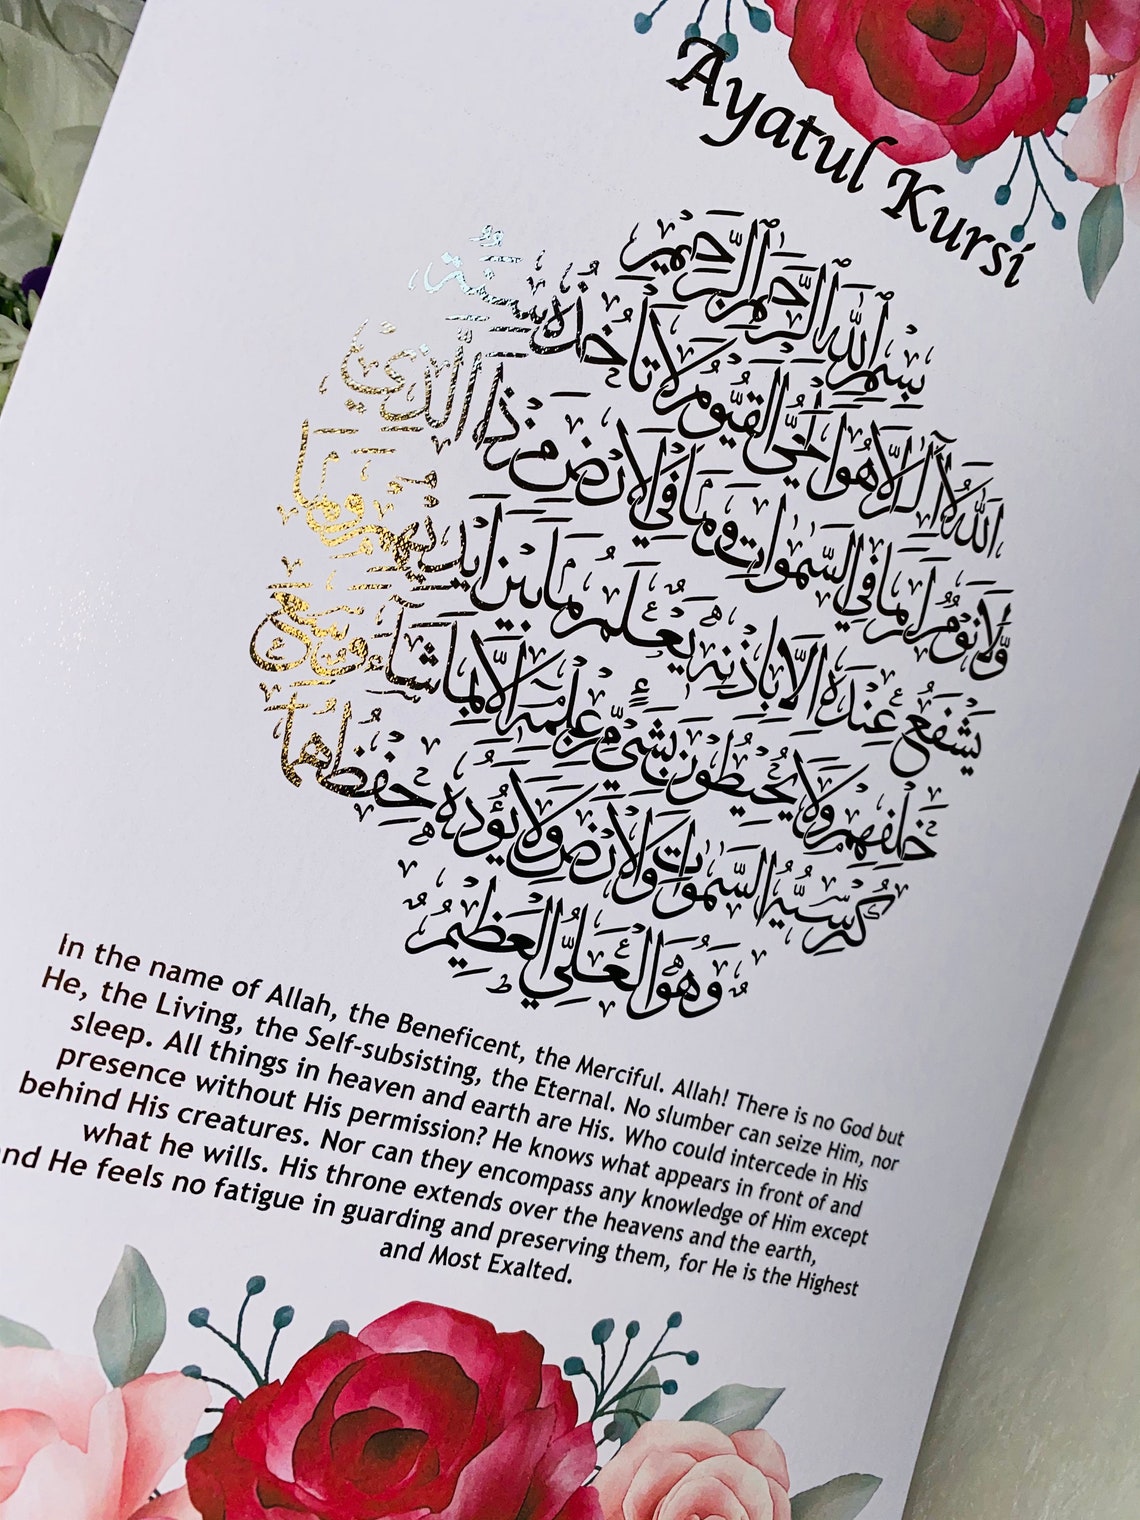 Ayatul Kursi
بِسْمِ اللّٰهِ الرَّحْمٰنِ الرَّحِيْمِ
اَللّٰهُ لَآ اِلٰهَ اِلَّا هُوَ اَلْحَيُّ الْقَيُّوْمُ لَا تَاْخُذُهٗ سِنَةٌ
وَّلَا نَوْمٌ لَهٗ مَا فِي السَّمٰوَاتِ وَمَا فِي الْاَرْضِ مَنْ ذَا الَّذِيْ
يَشْفَعُ عِنْدَهٗ اِلَّا بِاِذْنِهٖ يَعْلَمُ مَا بَيْنَ اَيْدِيْهِمْ وَمَا
خَلْفَهُمْ وَلَا يُحِيْطُوْنَ بِشَيْءٍ مِّنْ عِلْمِهٖٓ اِلَّا بِمَا شَآءَ وَسِعَ
كُرْسِيُّهُ السَّمٰوَاتِ وَالْاَرْضَ وَلَا يَؤُدُهٗ حِفْظُهُمَا
وَهُوَ الْعَلِيُّ الْعَظِيْمُ
In the name of Allah, the Beneficent, the Merciful. Allah! There is no God but
He, the Living, the Self-subsisting, the Eternal. No slumber can seize Him, nor
sleep. All things in heaven and earth are His. Who could intercede in His
presence without His permission? He knows what appears in front of and
behind His creatures. Nor can they encompass any knowledge of Him except
what he wills. His throne extends over the heavens and the earth,
and He feels no fatigue in guarding and preserving them, for He is the Highest
and Most Exalted.